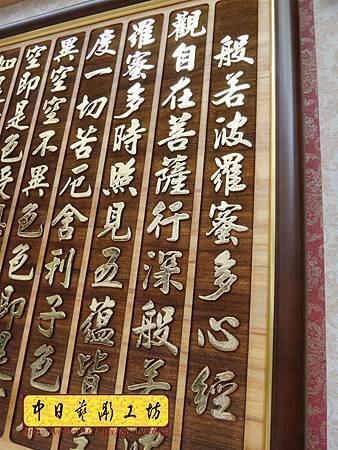 般若波羅蜜多心經
觀自在菩薩行深般若
羅蜜多時照見五蘊皆
度一切苦厄舍利子色
異空空不異色色
空即是色受
中日藝彫工坊